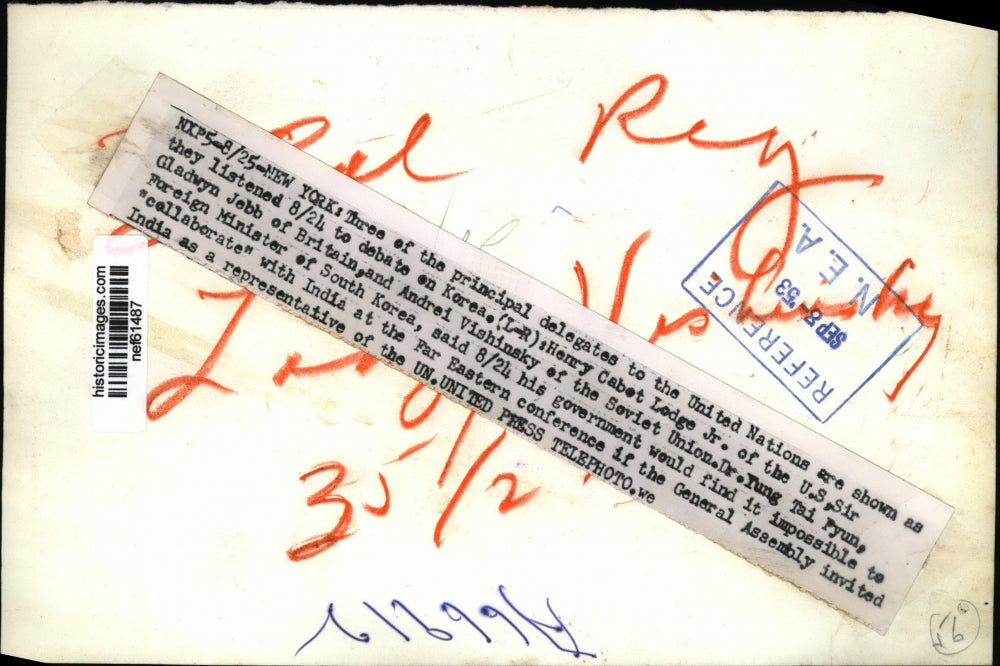 NXP5-8/25-NEW YORK: Three of the principal delegates to the United Nations are shown as
they listened 8/24 to debate on Korea. (L-R); Henry Cabot Lodge Jr. of the U.S, Sir
Gladwyn Jebb of Britain, and Andrei Vishinsky of the Soviet Union. Dr. Yung Tai Pyun,
Foreign Minister of South Korea, said 8/24 his government would find it impossible to
"collaborate" with India at the Far Eastern conference if the General Assembly invited
India as a representative of the UN. UNITED PRESS TELEPHOTO. we
historicimages.com
nef61487
REFERENCE
SEP 8-'53
N. E. A.
Col Reg
Vishinsky
35 1/2